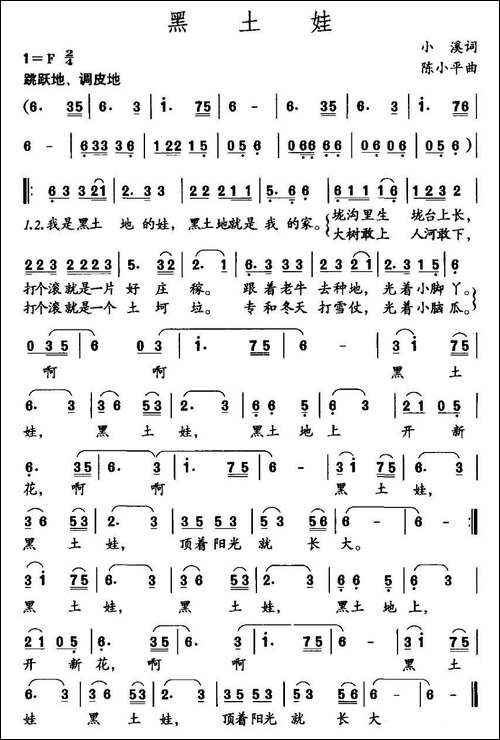 黑土娃
1=F 2/4
小溪词
跳跃地、调皮地
陈小平曲
(6. 35 | 6. 3 | i. 75 | 6. 35 | 6. 3 | i. 76
6 - | 6 33 3 6 | 1 22 1 5 | 0 5 6 | 0 6 66 6 6 | 0 6 0 6 | 0 5 6 )
6 3 3 21 | 2. 33 | 2 2 2 1 1 | 5. 66 | 6 1 1 1 6 | 1 2 3 2
1.2.我是黑土 地的娃,黑土地就是 我 的家。 垅沟里生 垅台上长,
大树敢上 人河敢下,
2 2 3 2 2 3 | 5. 32 | 2. 1 | 6. 3 33 | 2 3 21 | 2. 3 1 5 | 6
打个滚就是一片 好 庄 稼。 跟 着老牛 去种地, 光着小脚 丫。
打个滚就是一个 土 坷 垃。 专 和冬天 打雪仗, 光着小脑 瓜。
0 35 | 6 03 | i. 75 | 6 - | 3 i 75
啊 啊 黑 土
6. 3 | 36 53 | 2. 3 | 6 6 5 | 6 3 | 21 0 5
娃, 黑 土 娃, 黑土 地 上 开 新
6. 35 | 6. 3 | i. 75 | 6 - | 3 i 75 | 6. 3
花,啊 啊 黑 土 娃,
36 53 | 2. 3 | 35 53 | 36 53 | 6 - | 6 -
黑 土 娃, 顶着阳光 就 长 大。
3 i 75 | 6. 3 | 36 53 | 2. 3 | 6 6 5 | 6 3
黑 土 娃, 黑 土 娃, 黑土 地 上,
21 0 5 | 6. 35 | 6. 3 | i. 75 | 6 - | 3 i 75
开 新 花, 啊 啊 黑 土
6. 3 | 36 53 | 2. 3 | 35 53 | 0 5 0 53 | 6 - | 6 -
娃 黑 土 娃, 顶着阳光 就 长 大